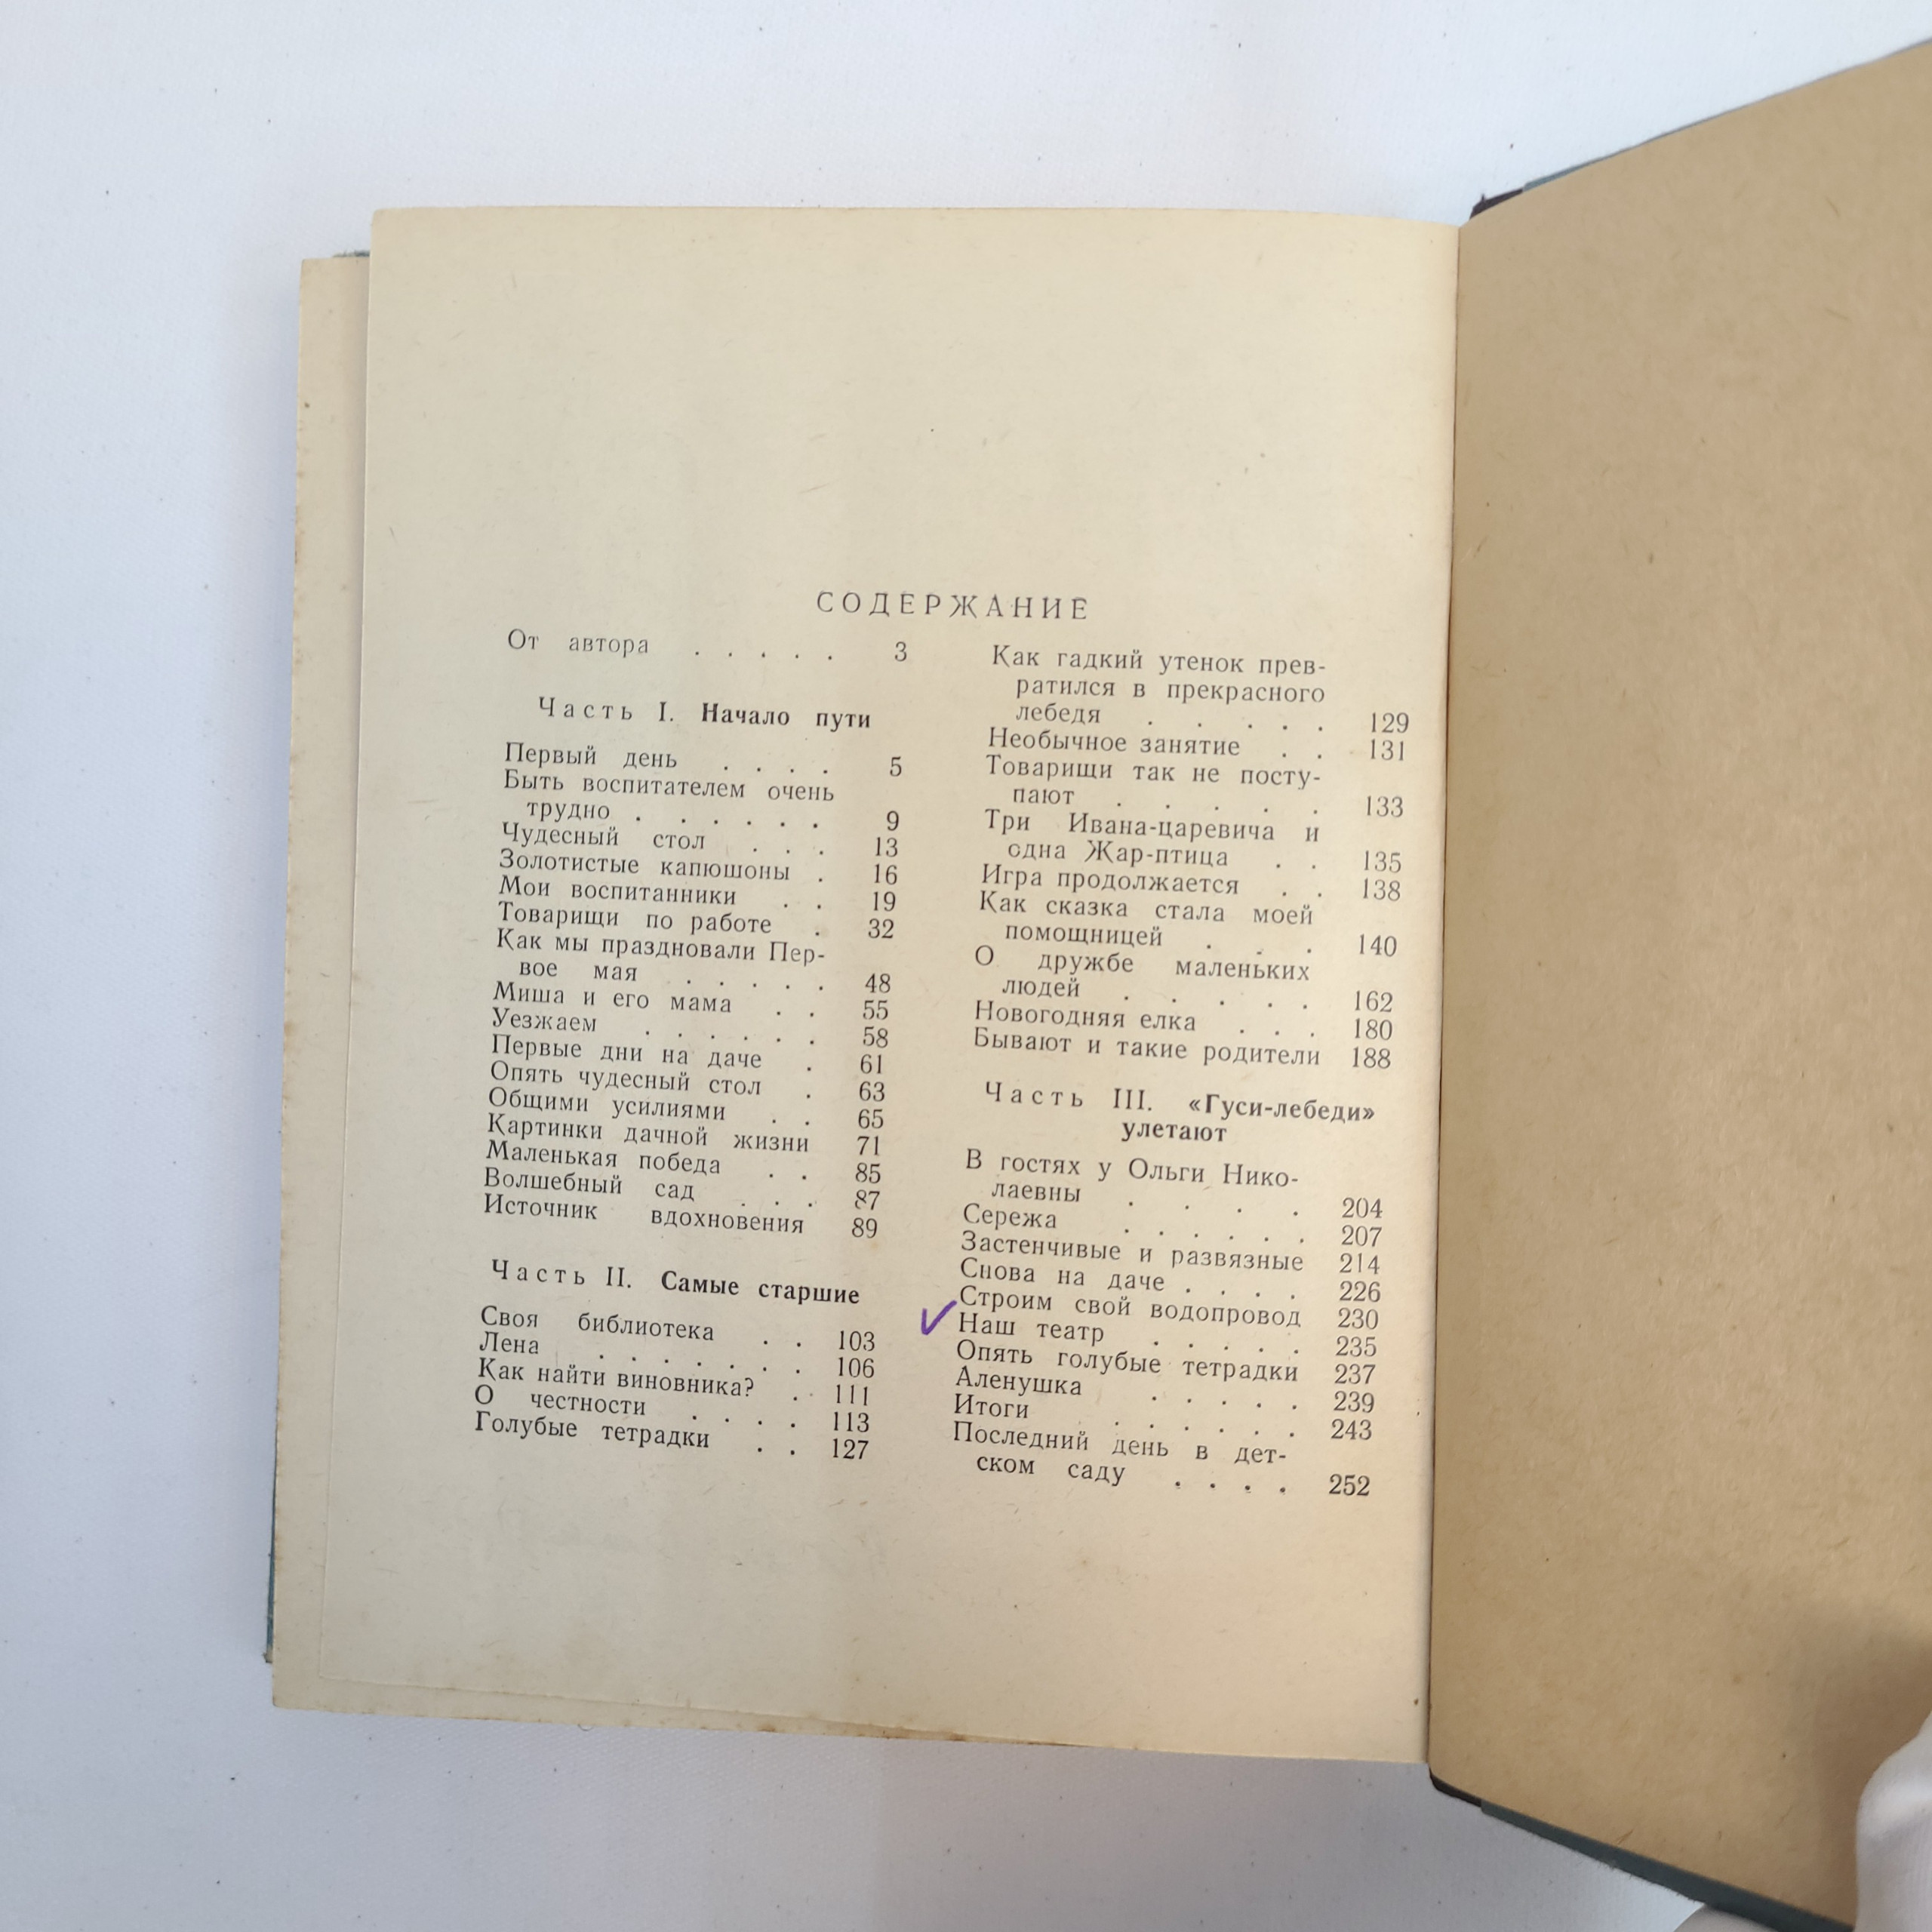 СОДЕРЖАНИЕ
От автора . . . . . 3
Часть I. Начало пути
Первый день . . . . 5
Быть воспитателем очень
трудно . . . . . . 9
Чудесный стол . . . 13
Золотистые капюшоны . 16
Мои воспитанники . . 19
Товарищи по работе . 32
Как мы праздновали Пер-
вое мая . . . . . 48
Миша и его мама . . 55
Уезжаем . . . . . . 58
Первые дни на даче . 61
Опять чудесный стол . 63
Общими усилиями . . 65
Картинки дачной жизни 71
Маленькая победа . . 85
Волшебный сад . . . 87
Источник вдохновения 89
Часть II. Самые старшие
Своя библиотека . . 103
Лена . . . . . . . 106
Как найти виновника? . 111
О честности . . . . 113
Голубые тетрадки . . 127
Как гадкий утенок прев-
ратился в прекрасного
лебедя . . . . . 129
Необычное занятие . . 131
Товарищи так не посту-
пают . . . . . 133
Три Ивана-царевича и
одна Жар-птица . . 135
Игра продолжается . . 138
Как сказка стала моей
помощницей . . . 140
О дружбе маленьких
людей . . . . . 162
Новогодняя елка . . . 180
Бывают и такие родители 188
Часть III. «Гуси-лебеди»
улетают
В гостях у Ольги Нико-
лаевны . . . . 204
Сережа . . . . . . 207
Застенчивые и развязные 214
Снова на даче . . . . 226
Строим свой водопровод 230
Наш театр . . . . . 235
Опять голубые тетрадки 237
Аленушка . . . . . 239
Итоги . . . . . . 243
Последний день в дет-
ском саду . . . . 252